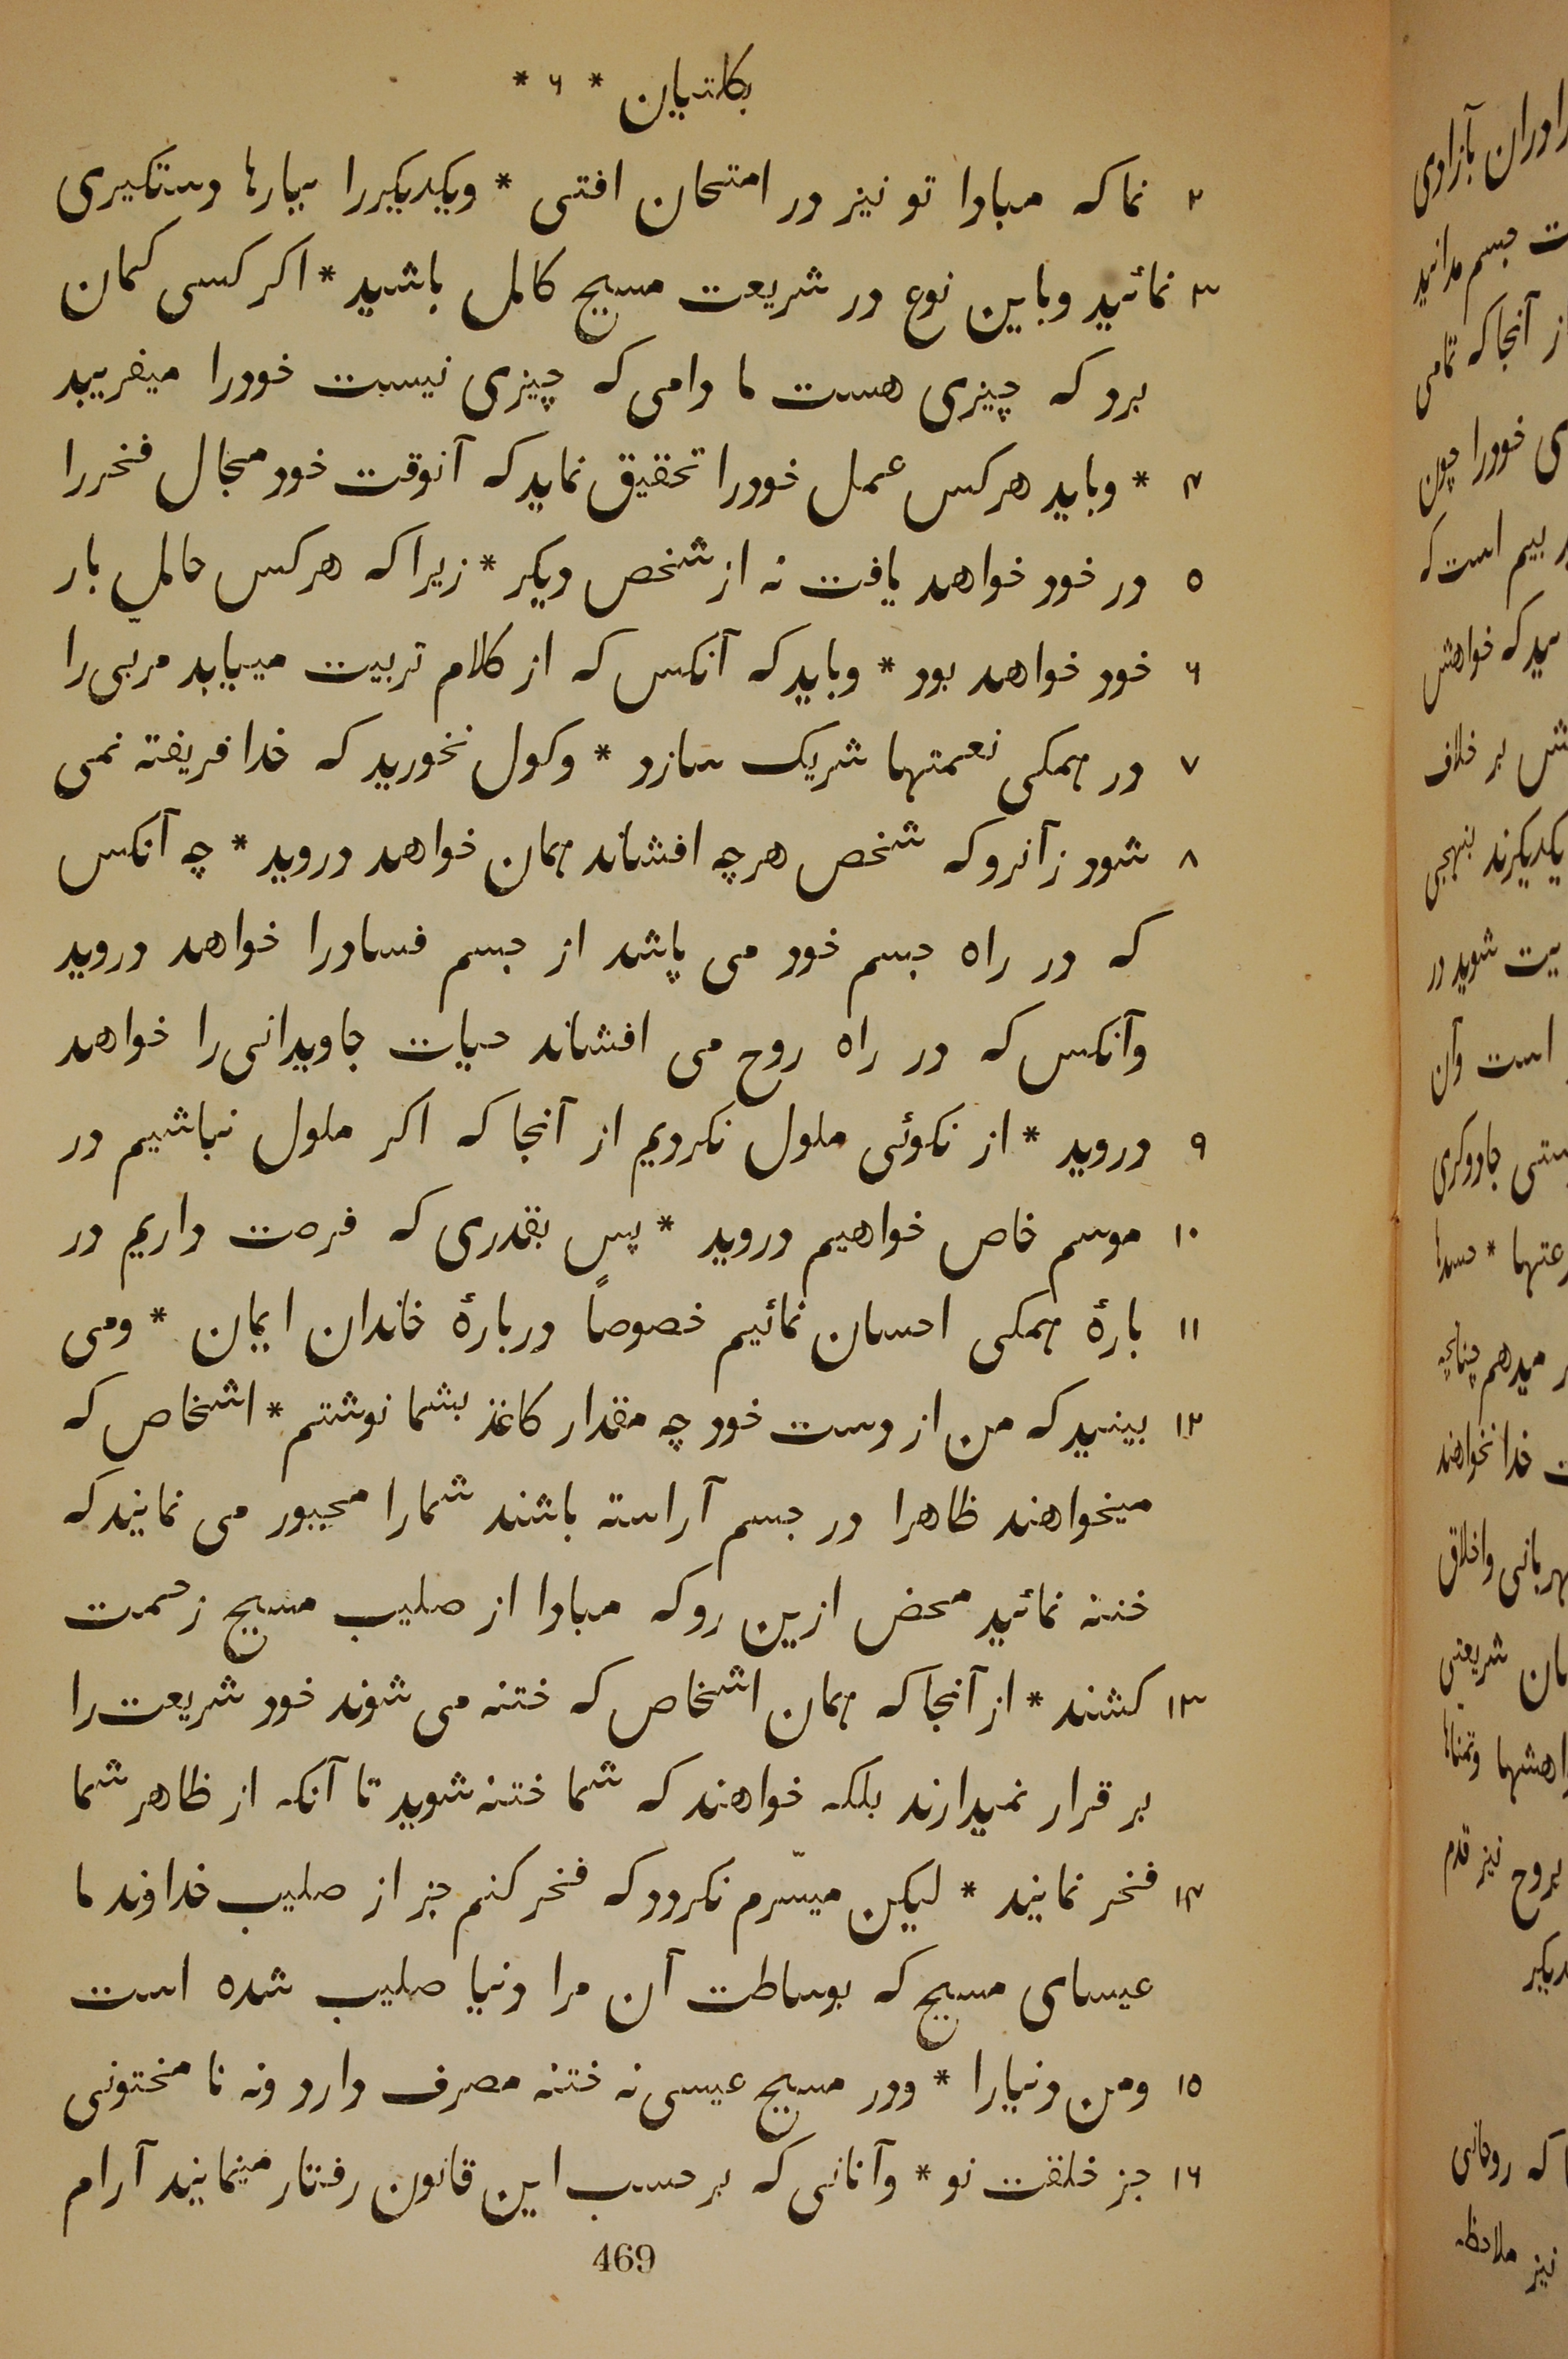 بکلتیان * ۶ *
۲ نما که مبادا تو نیز در امتحان افتی * ویکدیکررا ببارها دستکیری
۳ نمائید وباین نوع در شریعت مسیح کامل باشید * اکر کسی کمان
برد که چیزی هست ما دامی که چیزی نیست خودرا میفریبد
۴ * وباید هرکس عمل خودرا تحقیق نماید که آنوقت خود مجال فخررا
۵ در خود خواهد یافت نه از شخص دیکر * زیرا که هرکس حامل بار
۶ خود خواهد بود * وباید که آنکس که از کلام تربیت مییابد مربّی را
۷ در همکی نعمتها شریک سازد * وکول نخورید که خدا فریفته نمی
۸ شود زآنرو که شخص هرچه افشاند همان خواهد دروید * چه آنکس
که در راه جسم خود می پاشد از جسم فسادرا خواهد دروید
وآنکس که در راه روح می افشاند حیات جاویدانی را خواهد
۹ دروید * از نکوئی ملول نکردیم از آنجا که اکر ملول نباشیم در
۱۰ موسم خاص خواهیم دروید * پس بقدری که فرصت داریم در
۱۱ بارهٔ همکی احسان نمائیم خصوصاً دربارهٔ خاندان ایمان * ومی
۱۲ بینید که من از دست خود چه مقدار کاغذ بشما نوشتم * اشخاص که
میخواهند ظاهرا در جسم آراسته باشند شمارا مجبور می نمایند که
ختنه نمائید محض ازین رو که مبادا از صلیب مسیح زحمت
۱۳ کشند * از آنجا که همان اشخاص که ختنه می شوند خود شریعت را
بر قرار نمیدارند بلکه خواهند که شما ختنه شوید تا آنکه از ظاهر شما
۱۴ فخر نمایند * لیکن میسّرم نکردد که فخر کنم جز از صلیب خداوند ما
عیسای مسیح که بوساطت آن مرا دنیا صلیب شده است
۱۵ ومن دنیارا * ودر مسیح عیسی نه ختنه مصرف دارد ونه نا مختونی
۱۶ جز خلقت نو * وآنانی که بر حسب این قانون رفتار مینمایند آرام
469